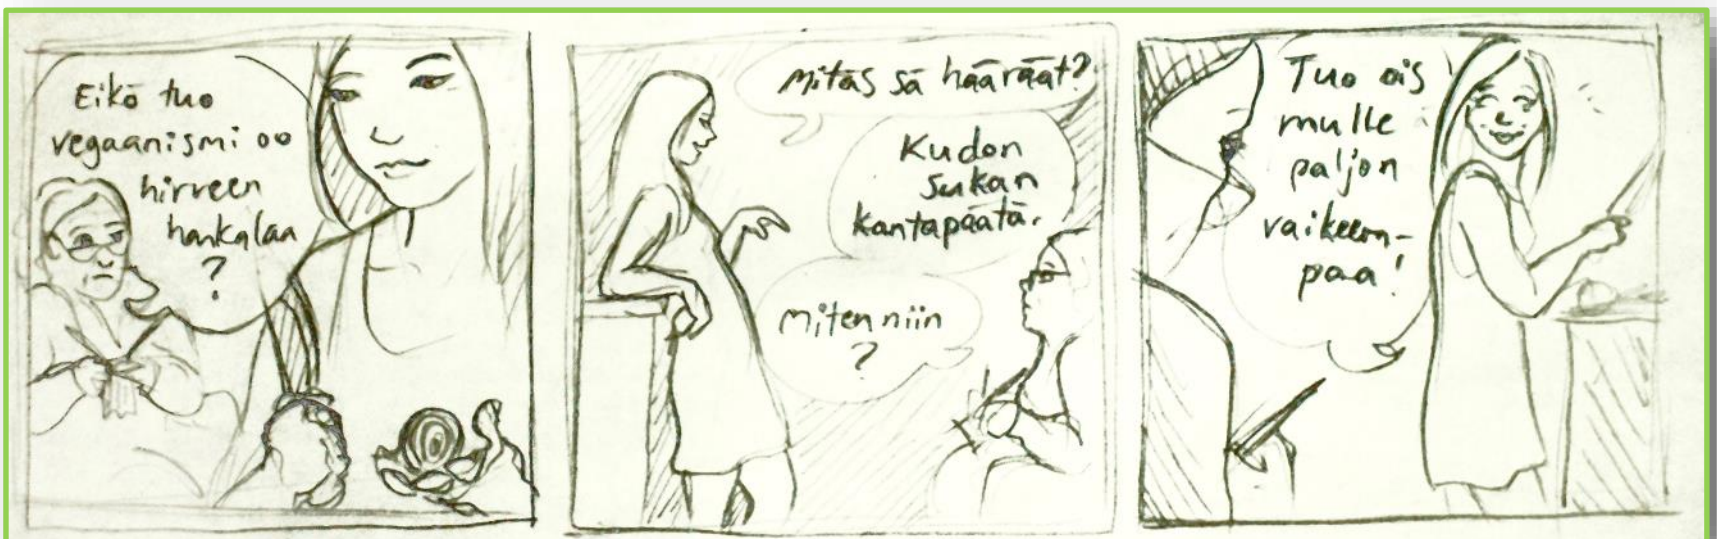 Eikö tuo
vegaanismi oo
hirveen
hankalaa
?
Mitäs sä hääräät?
Kudon
sukan
kantapäätä.
Miten niin
?
Tuo ois
mulle
paljon
vaikeem-
paa!